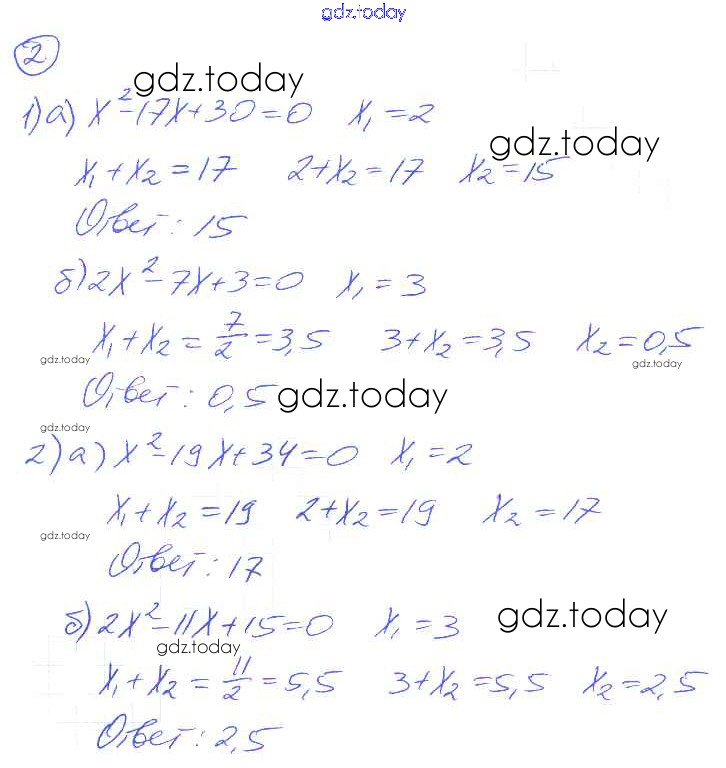 gdz.today
2
gdz.today
1) а) x²-17x+30=0 x₁=2
gdz.today
x₁+x₂=17 2+x₂=17 x₂=15
Ответ: 15
б) 2x²-7x+3=0 x₁=3
x₁+x₂=7/2=3,5 3+x₂=3,5 x₂=0,5
gdz.today
gdz.today
Ответ: 0,5 gdz.today
gdz.today
2) а) x²-19x+34=0 x₁=2
x₁+x₂=19 2+x₂=19 x₂=17
gdz.today
Ответ: 17
б) 2x²-11x+15=0 x₁=3 gdz.today
gdz.today
x₁+x₂=11/2=5,5 3+x₂=5,5 x₂=2,5
Ответ: 2,5